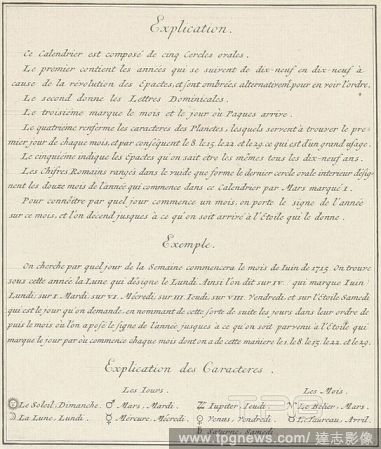 Explication.
Ce Calendrier est composé de cinq Cercles orales.
Le premier contient les années qui se suivent de dix-neuf en dix-neuf à
cause de la révolution des Epactes, et sont ombrées alternativem.t pour en voir l'ordre.
Le second donne les Lettres Dominicales.
Le troisième marque le mois et le jour où Paques arrive.
Le quatrième renferme les caracteres des Planetes, lesquels servent à trouver le pre-
mier jour de chaque mois, et par conséquent le 8. le 15. le 22. et le 29. ce qui est d'un grand usage.
Le cinquième indique les Epactes qu'on sait etre les mêmes tous les dix-neuf ans.
Les Chifres Romains rangés dans le vuide que forme le dernier cercle orale interieur desig-
nent les douze mois de l'année qui commence dans ce Calendrier par Mars marqué 1.
Pour connôitre par quel jour commence un mois, on porte le signe de l'année
sur ce mois, et l'on decend jusques à ce qu'on soit arrivé à l'Etoile qui le donne.
Exemple.
On cherche par quel jour de la Semaine commencera le mois de Iuin de 1715. On trouve
sous cette année la Lune qui désigne le Lundi. Ainsi l'on dit sur IV. qui marque Iuin
Lundi; sur I. Mardi, sur VI. Mécredi, sur III. Ieudi, sur VIII. Vendredi, et sur l'Etoile Samedi
qui est le jour qu'on demande, en nommant de cette sorte de suite les jours dans leur ordre de
puis le mois où l'on a posé le signe de l'année, jusques à ce qu'on soit parvenu à l'Etoile qui
marque le jour par où commence chaque mois dont on a de cette maniere le 1. le 8. le 15. le 22. et le 29.
Explication des Caracteres.
Les Iours. Les Mois.
☉ Le Soleil, Dimanche. ♂ Mars, Mardi. ♃ Iupiter, Ieudi. ♈ Le Bélier, Mars.
☽ La Lune, Lundi. ☿ Mércure, Mécredi. ♀ Venus, Vendredi. ♉ Le Taureau, Avril.
♄ Saturne, Samedi.
www.tpgnews.com / 達志影像